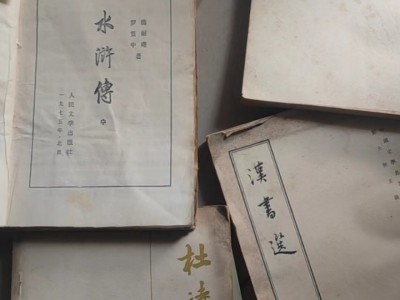 施耐庵
罗贯中 著
水浒傳
人民文学出版社
一九七五年·北京
漢書選
杜诗